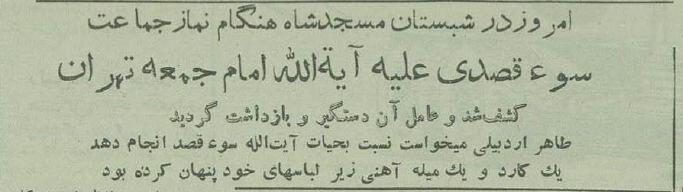 امروز در شبستان مسجد شاه هنگام نماز جماعت
سوء قصدی علیه آیة‌الله امام جمعه تهران
کشف شد و عامل آن دستگیر و بازداشت گردید
طاهر اردبیلی میخواست نسبت بحیات آیت‌الله سوء قصد انجام دهد
یك کارد و یك میله آهنی زیر لباسهای خود پنهان کرده بود